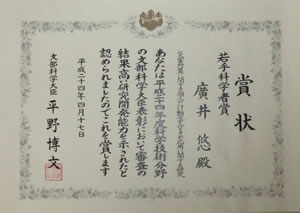 賞状
若手科学者賞
廣井 悠 殿
あなたは平成二十四年度科学技術分野
の文部科学大臣表彰において審査の
結果高い研究開発能力を示されたと
認められましたのでこれを賞します
平成二十四年四月十七日
文部科学大臣 平野博文